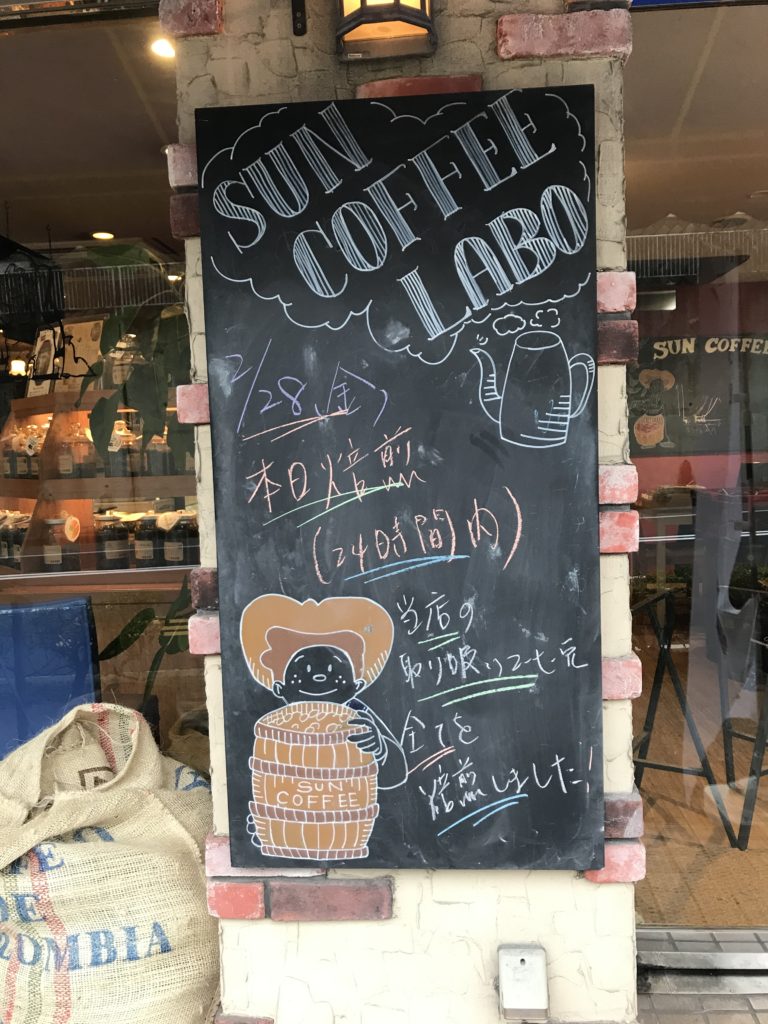 SUN
COFFEE
LABO
2/28、金、
本日焙煎
(24時間内)
当店の
取り扱いコーヒー豆
全てを
焙煎しました!
SUN
COFFEE
SUN COFFEE
DE
OMBIA